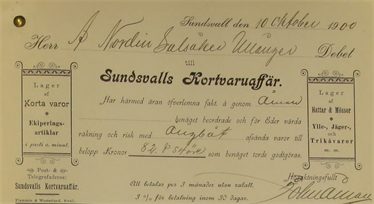 Sundsvall den 10 Oktober 1900
Herr A Nordin Debet
till
Sundsvalls Kortvaruaffär.
Lager
af
Korta varor
Ekiperings-
artiklar
i parti o. minut.
Post- &
Telegrafadress:
Sundsvalls Kortvaruaffär.
Har härmed äran öfverlemna fakt. å genom
benäget beordrade och för Eder värda
räkning och risk med Ångbåt afsända varor till
belopp Kronor 82. som benäget torde godtgöras.
Lager
af
Hattar & Mössor
Ylle-, Jäger-,
och
Trikåvaror
Högaktningsfullt
Att betalas per 3 månader utan rabatt.
3 % för betalning inom 30 dagar.